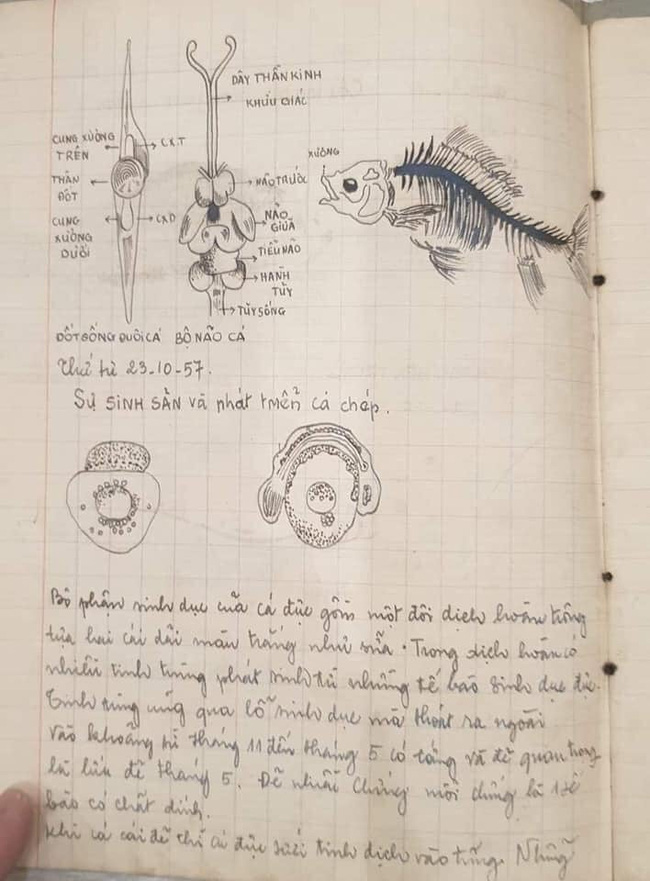 DÂY THẦN KINH
KHỨU GIÁC
CUNG XƯƠNG
TRÊN
C.X.T
THÂN
ĐỐT
CUNG
XƯƠNG
DƯỚI
CXD
NÃO TRƯỚC
NÃO
GIỮA
TIỂU NÃO
HÀNH
TỦY
TỦY SỐNG
XƯƠNG
ĐỐT SỐNG ĐUÔI CÁ BỘ NÃO CÁ
Thứ tư 23-10-57.
Sự SINH SẢN và phát triển cá chép.
Bộ phận sinh dục của cá đực gồm một đôi dịch hoàn trông
tựa hai cái dải màu trắng như sữa. Trong dịch hoàn có
nhiều tinh trùng phát sinh từ những tế bào sinh dục đực.
Tinh trùng qua lỗ sinh dục mà thoát ra ngoài
vào khoảng từ tháng 11 đến tháng 5 có và đẻ quan trọng
là lứa đẻ tháng 5. Đẻ nhiều chứng mỗi chứng là 1 tế
bào có chất dính.
Khi cá cái đẻ thì cá đực tưới tinh dịch vào trứng. Những